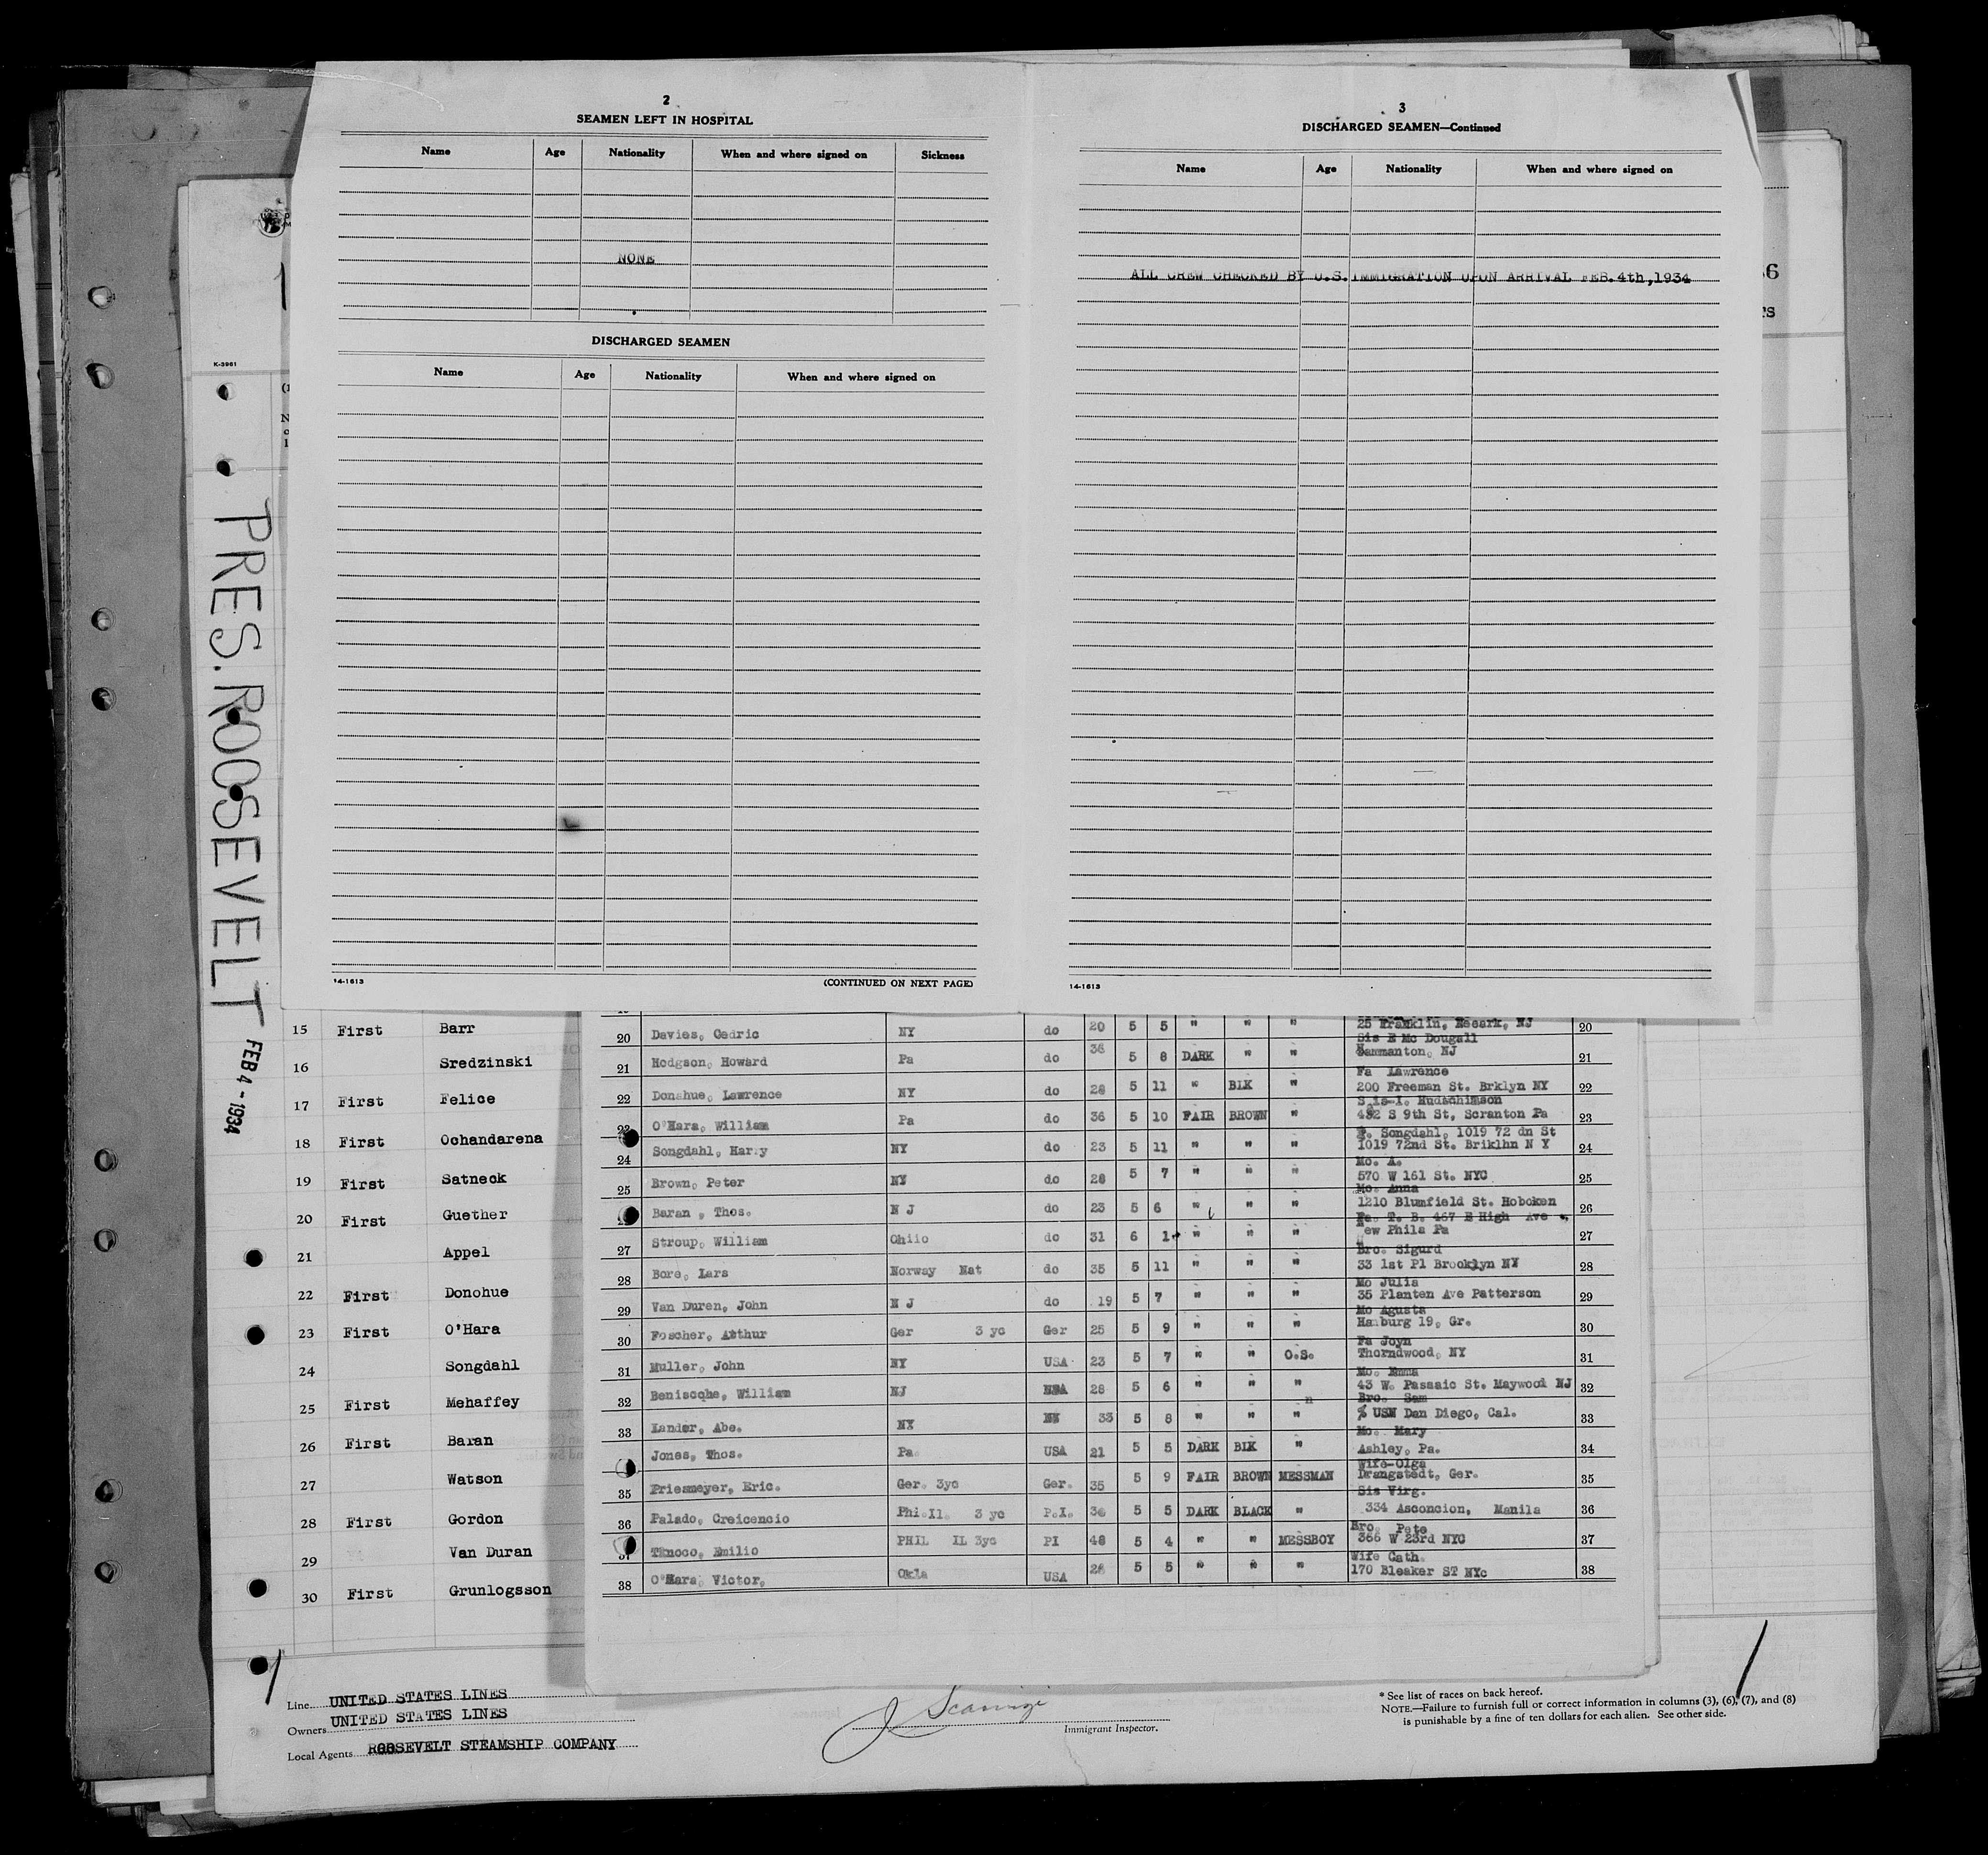 2
SEAMEN LEFT IN HOSPITAL
Name Age Nationality When and where signed on Sickness
NONE
DISCHARGED SEAMEN
Name Age Nationality When and where signed on
14-1613 (CONTINUED ON NEXT PAGE)
3
DISCHARGED SEAMEN—Continued
Name Age Nationality When and where signed on
ALL CREW CHECKED BY U.S. IMMIGRATION UPON ARRIVAL FEB.4th,1934
14-1613
K-3961
PRES. ROOSEVELT FEB 4 - 1934
15 First Barr
16 Sredzinski
17 First Felice
18 First Ochandarena
19 First Satneck
20 First Guether
21 Appel
22 First Donohue
23 First O'Hara
24 Songdahl
25 First Mehaffey
26 First Baran
27 Watson
28 First Gordon
29 Van Duran
30 First Grunlogsson
20 Davies, Cedric NY do 20 5 5 " " " 25 Franklin, Neeark, NJ 20
Sis E Mc Dougall
21 Hodgson, Howard Pa do 36 5 8 DARK " " Hammanton, NJ 21
Fa Lawrence
22 Donahue, Lawrence NY do 28 5 11 " BLK " 200 Freeman St. Brklyn NY 22
23 O'Hara, William Pa do 36 5 10 FAIR BROWN " 432 S 9th St, Scranton Pa 23
F. Songdahl, 1019 72 dn St
24 Songdahl, Harry NY do 23 5 11 " " " 1019 72nd St. Briklhn N Y 24
Mo. A.
25 Brown, Peter NY do 28 5 7 " " " 570 W 161 St. NYC 25
Mo. Anna
Baran , Thos. N J do 23 5 6 " " " 1210 Blumfield St. Hoboken 26
Fa. T. B. 467 E High Ave
27 Stroup, William Ohiio do 31 6 1 " " " New Phila Pa 27
Bro. Sigurd
28 Bore, Lars Norway Nat do 35 5 11 " " " 33 1st Pl Brooklyn NY 28
Mo Julia
29 Van Duren, John N J do 19 5 7 " " " 35 Planten Ave Patterson 29
Mo Agusta
30 Foscher, Arthur Ger 3 yc Ger 25 5 9 " " " Hamburg 19, Gr. 30
Fa Joyn
31 Muller, John NY USA 23 5 7 " " O.S. Thorndwood, NY 31
Mo. Emma
32 Benisoqhe, William NJ USA 28 5 6 " " " 43 W. Passaic St. Maywood NJ 32
Bro. Sam
33 Lander, Abe. NY 33 5 8 " " " % USN Dan Diego, Cal. 33
Mo. Mary
Jones, Thos. Pa. USA 21 5 5 DARK BLK " Ashley, Pa. 34
Wife-Olga
35 Priesmeyer, Eric. Ger. 3yc Ger. 35 5 9 FAIR BROWN MESSMAN Drangstedt, Ger. 35
Sis Virg.
36 Palado, Creicencio Phi.Il. 3 yc P.I. 36 5 5 DARK BLACK " 334 Asconcion, Manila 36
Bro. Pete
37 Tinoco, Emilio PHIL IL 3yc PI 48 5 4 " " MESSBOY 366 W 23rd NYC 37
Wife Cath.
38 O'Hara, Victor, Okla USA 28 5 5 " " " 170 Bleaker ST NYc 38
Line UNITED STATES LINES
Owners UNITED STATES LINES
Local Agents ROOSEVELT STEAMSHIP COMPANY
Immigrant Inspector.
* See list of races on back hereof.
NOTE.—Failure to furnish full or correct information in columns (3), (6), (7), and (8)
is punishable by a fine of ten dollars for each alien. See other side.